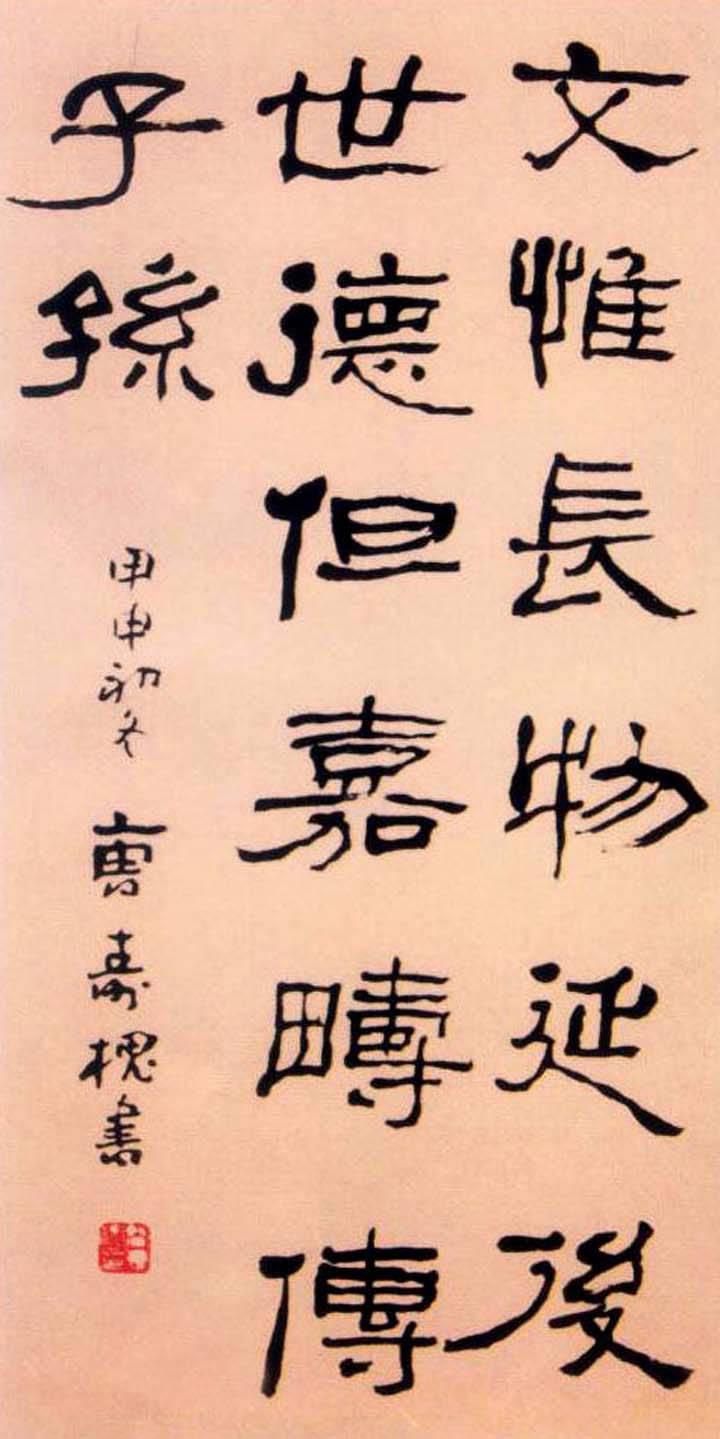 文惟長物延後
世德但嘉疇傳
子孫
甲申初冬 曹壽槐書